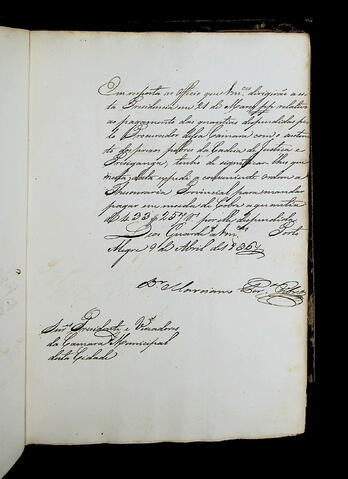 Em resposta ao Officio que Vm.ces dirigirão a es
ta Presidencia em 21 de Março pp. relativo
ao pagamento das quantias dispendidas pe
lo Procurador dessa Camara com o sustento
de presos pobres da Cadeia de Justiça e
Presiganga, tenho de significar-lhes que
nesta data expede-se conveniente ordem a
Thesouraria Provincial para mandar
pagar em moeda de Cobre a quantia
de 33$257 r.s por elle dispendida.
Deos Guarde a Vm.ces Porto
Alegre 9 de Abril de 1836
Marciano Per.a Ribeiro
Snr.es Presidente e Vereadores
da Camara Municipal
desta Cidade